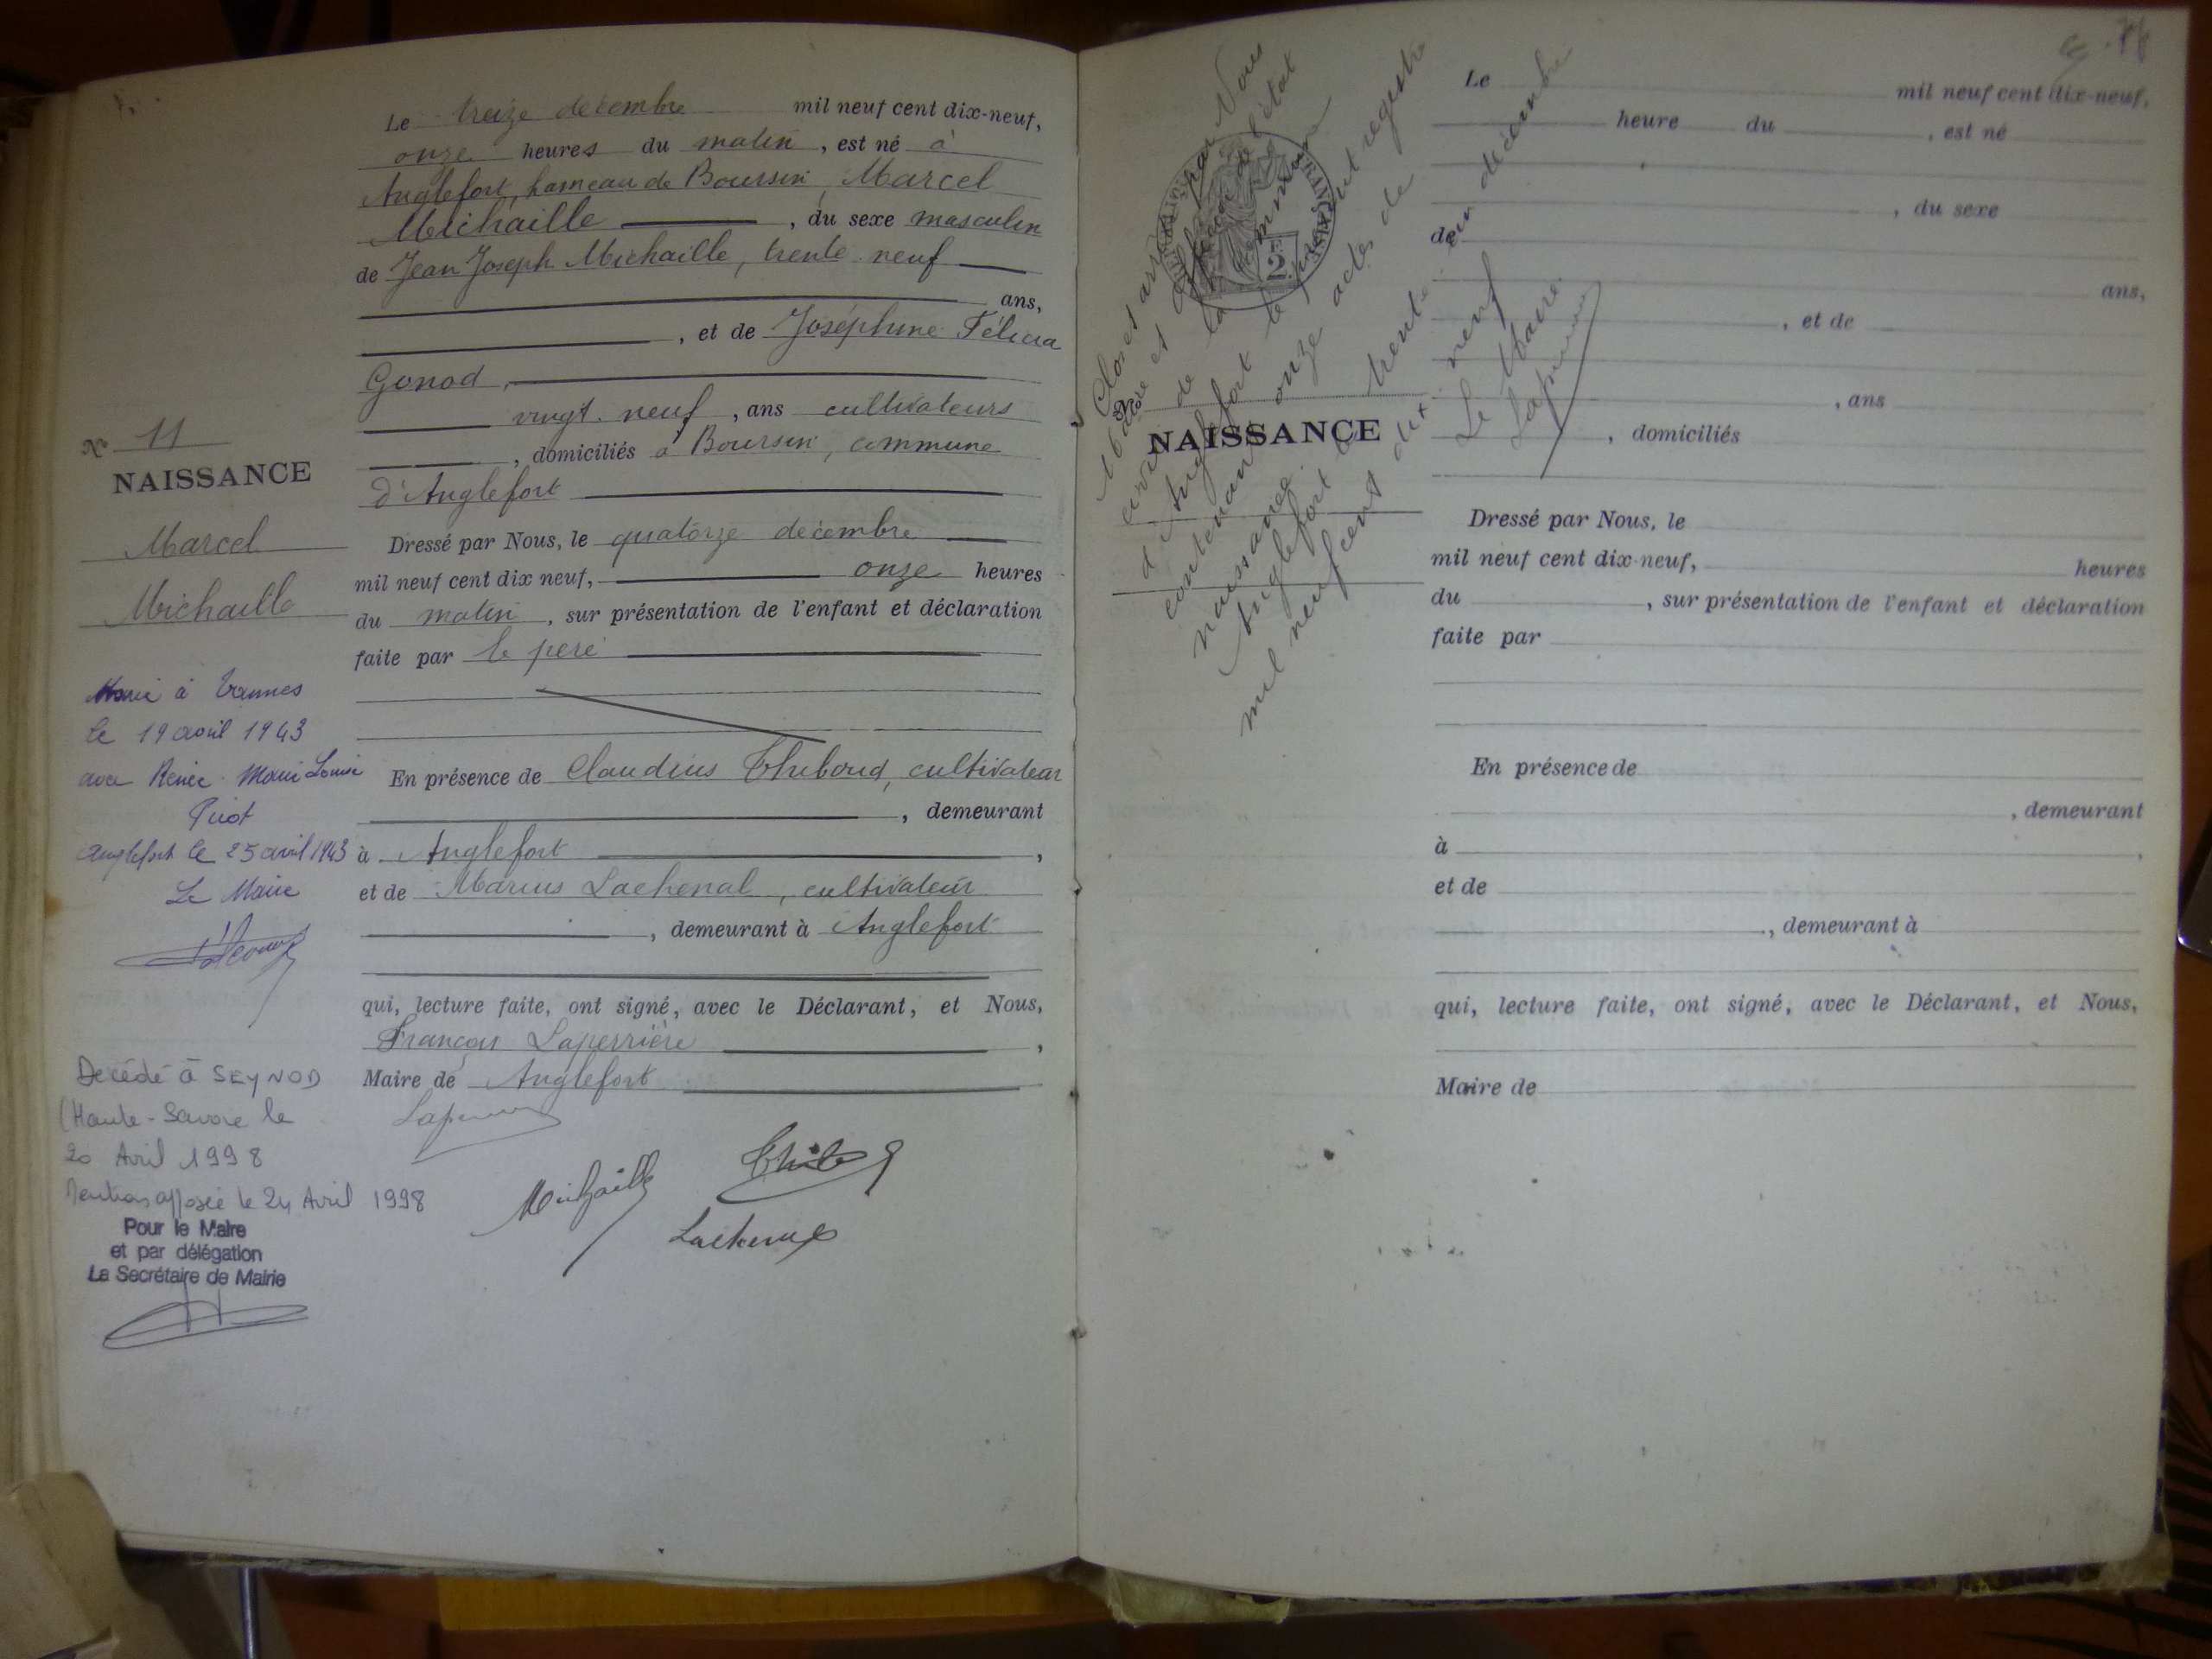 Le treize décembre mil neuf cent dix-neuf,
onze heures du matin, est né à
Anglefort, hameau de Boursin, Marcel
Michaille, du sexe masculin
de Jean Joseph Michaille, trente neuf
ans,
, et de Joséphine Félicia
Gonod,
vingt-neuf, ans cultivateurs
, domiciliés à Boursin, commune
d'Anglefort
Dressé par Nous, le quatorze décembre
mil neuf cent dix neuf, onze heures
du matin, sur présentation de l'enfant et déclaration
faite par le père
En présence de Claudius Thiboud, cultivateur
, demeurant
à Anglefort,
et de Marius Lachenal, cultivateur
, demeurant à Anglefort
qui, lecture faite, ont signé, avec le Déclarant, et Nous,
François Laperrière,
Maire de Anglefort
Michaille
Lachenal
No 11
NAISSANCE
Marcel
Michaille
Marié à
le 19 avril 1943
avec Renée Marie Louise
Anglefort le 25 avril 1943
Le Maire
Décédé à SEYNOD
(Haute-Savoie le
20 Avril 1998
Mention apposée le 24 Avril 1998
Pour le Maire
et par délégation
La Secrétaire de Mairie
Clos et arrêté par Nous
Maire et officier de l'état
civil de la commune
d'Anglefort le présent registre
contenant onze actes de
naissance.
Anglefort le trente un décembre
mil neuf cent dix neuf
Le Maire
2
No
NAISSANCE
Le mil neuf cent dix-neuf,
heure du , est né
, du sexe
de
ans,
, et de
, ans
, domiciliés
Dressé par Nous, le
mil neuf cent dix-neuf, heures
du , sur présentation de l'enfant et déclaration
faite par
En présence de
, demeurant
à ,
et de
, demeurant à
qui, lecture faite, ont signé, avec le Déclarant, et Nous,
Maire de